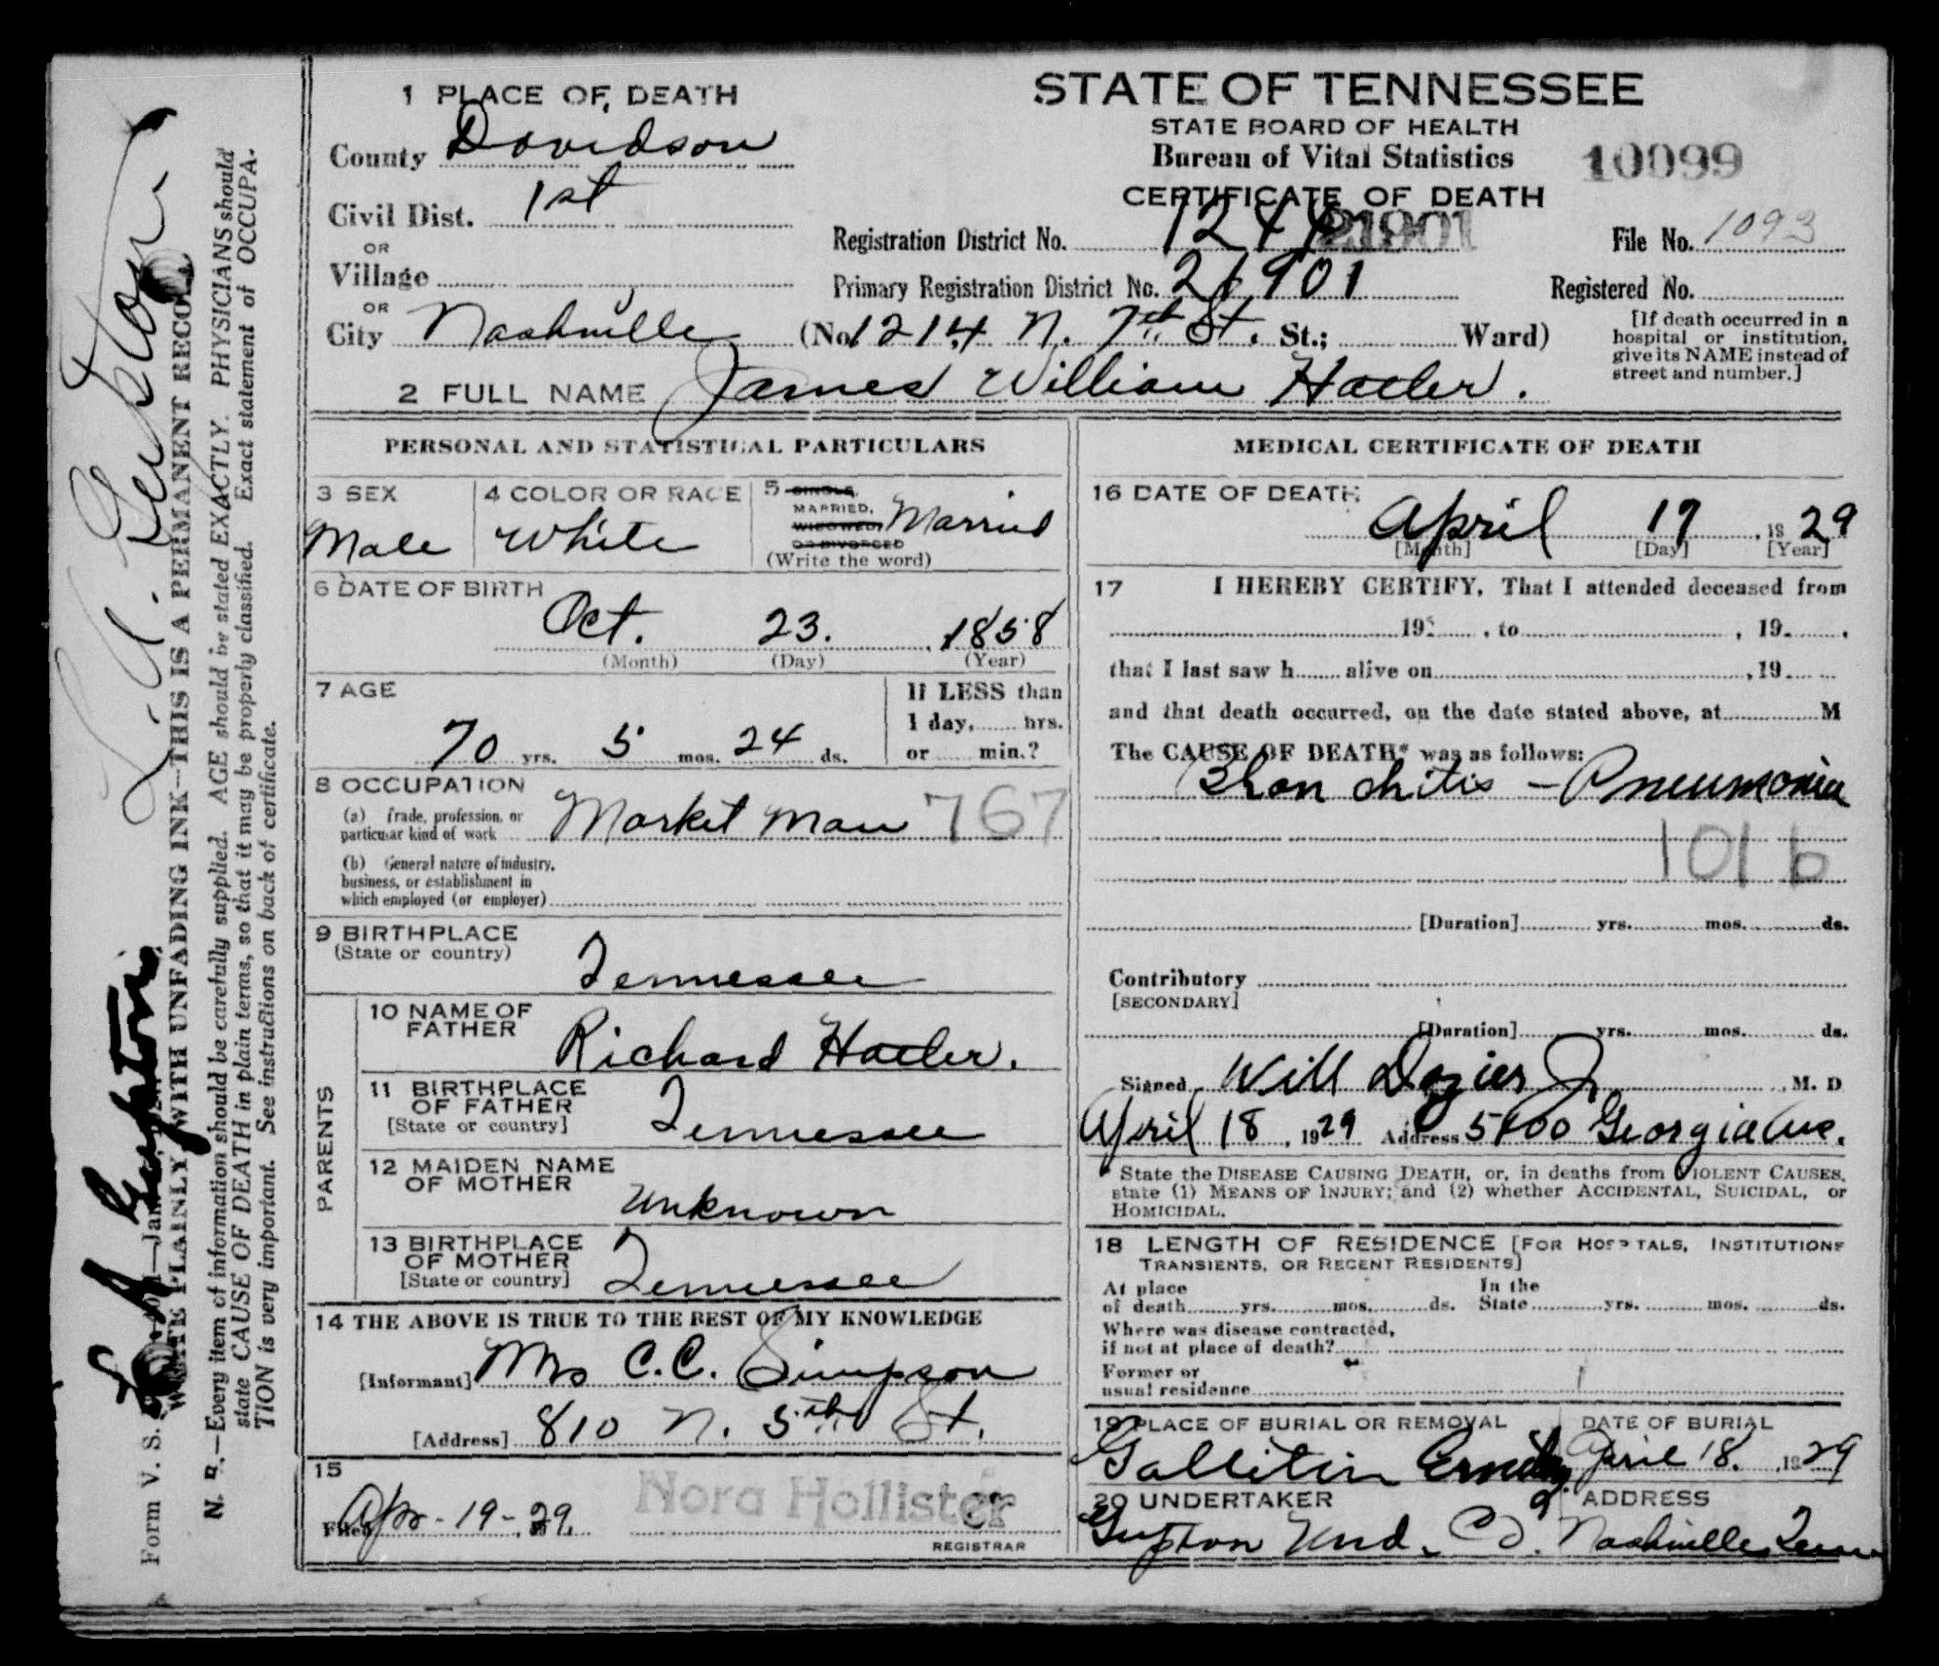 1 PLACE OF DEATH
County Davidson
Civil Dist. 1st
OR
Village
OR
City Nashville (No. 1214 N. 7th St. St.; Ward)
STATE OF TENNESSEE
STATE BOARD OF HEALTH
Bureau of Vital Statistics
10099
CERTIFICATE OF DEATH
Registration District No. 21901
File No. 1093
Primary Registration District No. 21901
Registered No.
[If death occurred in a
hospital or institution,
give its NAME instead of
street and number.]
2 FULL NAME James William Hatler.
PERSONAL AND STATISTICAL PARTICULARS
3 SEX
Male
4 COLOR OR RACE
White
5 SINGLE,
MARRIED,
WIDOWED,
OR DIVORCED
(Write the word)
Married
6 DATE OF BIRTH
Oct. 23. , 1858
(Month) (Day) (Year)
7 AGE
70 yrs. 5 mos. 24 ds.
If LESS than
1 day, hrs.
or min.?
8 OCCUPATION
(a) Trade, profession, or
particular kind of work Market Man 767
(b) General nature of industry,
business, or establishment in
which employed (or employer)
9 BIRTHPLACE
(State or country)
Tennessee
PARENTS
10 NAME OF
FATHER
Richard Hatler.
11 BIRTHPLACE
OF FATHER
[State or country]
Tennessee
12 MAIDEN NAME
OF MOTHER
Unknown
13 BIRTHPLACE
OF MOTHER
[State or country]
Tennessee
14 THE ABOVE IS TRUE TO THE BEST OF MY KNOWLEDGE
[Informant] Mrs C.C. Simpson
[Address] 810 N. 5th St.
15
Filed Apr-19-29,
Nora Hollister
REGISTRAR
MEDICAL CERTIFICATE OF DEATH
16 DATE OF DEATH
April 17 , 1929
[Month] [Day] [Year]
17 I HEREBY CERTIFY, That I attended deceased from
19 , to , 19 .
that I last saw h alive on , 19
and that death occurred, on the date stated above, at M
The CAUSE OF DEATH* was as follows:
Bronchitis - Pneumonia
101 b
[Duration] yrs. mos. ds.
Contributory
[SECONDARY]
[Duration] yrs. mos. ds.
Signed Will Dozier Jr , M. D
April 18 , 1929 Address 5100 Georgia Ave.
* State the DISEASE CAUSING DEATH, or, in deaths from VIOLENT CAUSES,
state (1) MEANS OF INJURY; and (2) whether ACCIDENTAL, SUICIDAL, or
HOMICIDAL.
18 LENGTH OF RESIDENCE [FOR HOSPITALS, INSTITUTIONS
TRANSIENTS, OR RECENT RESIDENTS]
At place In the
of death yrs. mos. ds. State yrs. mos. ds.
Where was disease contracted,
if not at place of death?
Former or
usual residence
19 PLACE OF BURIAL OR REMOVAL
DATE OF BURIAL
Gallitin April 18. , 1929
20 UNDERTAKER
ADDRESS
Gupton Und. Co. Nashville, Tenn
Form V. S.
WRITE PLAINLY, WITH UNFADING INK—THIS IS A PERMANENT RECORD
N. B.—Every item of information should be carefully supplied. AGE should be stated EXACTLY. PHYSICIANS should
state CAUSE OF DEATH in plain terms, so that it may be properly classified. Exact statement of OCCUPA-
TION is very important. See instructions on back of certificate.
L. A. Gupton